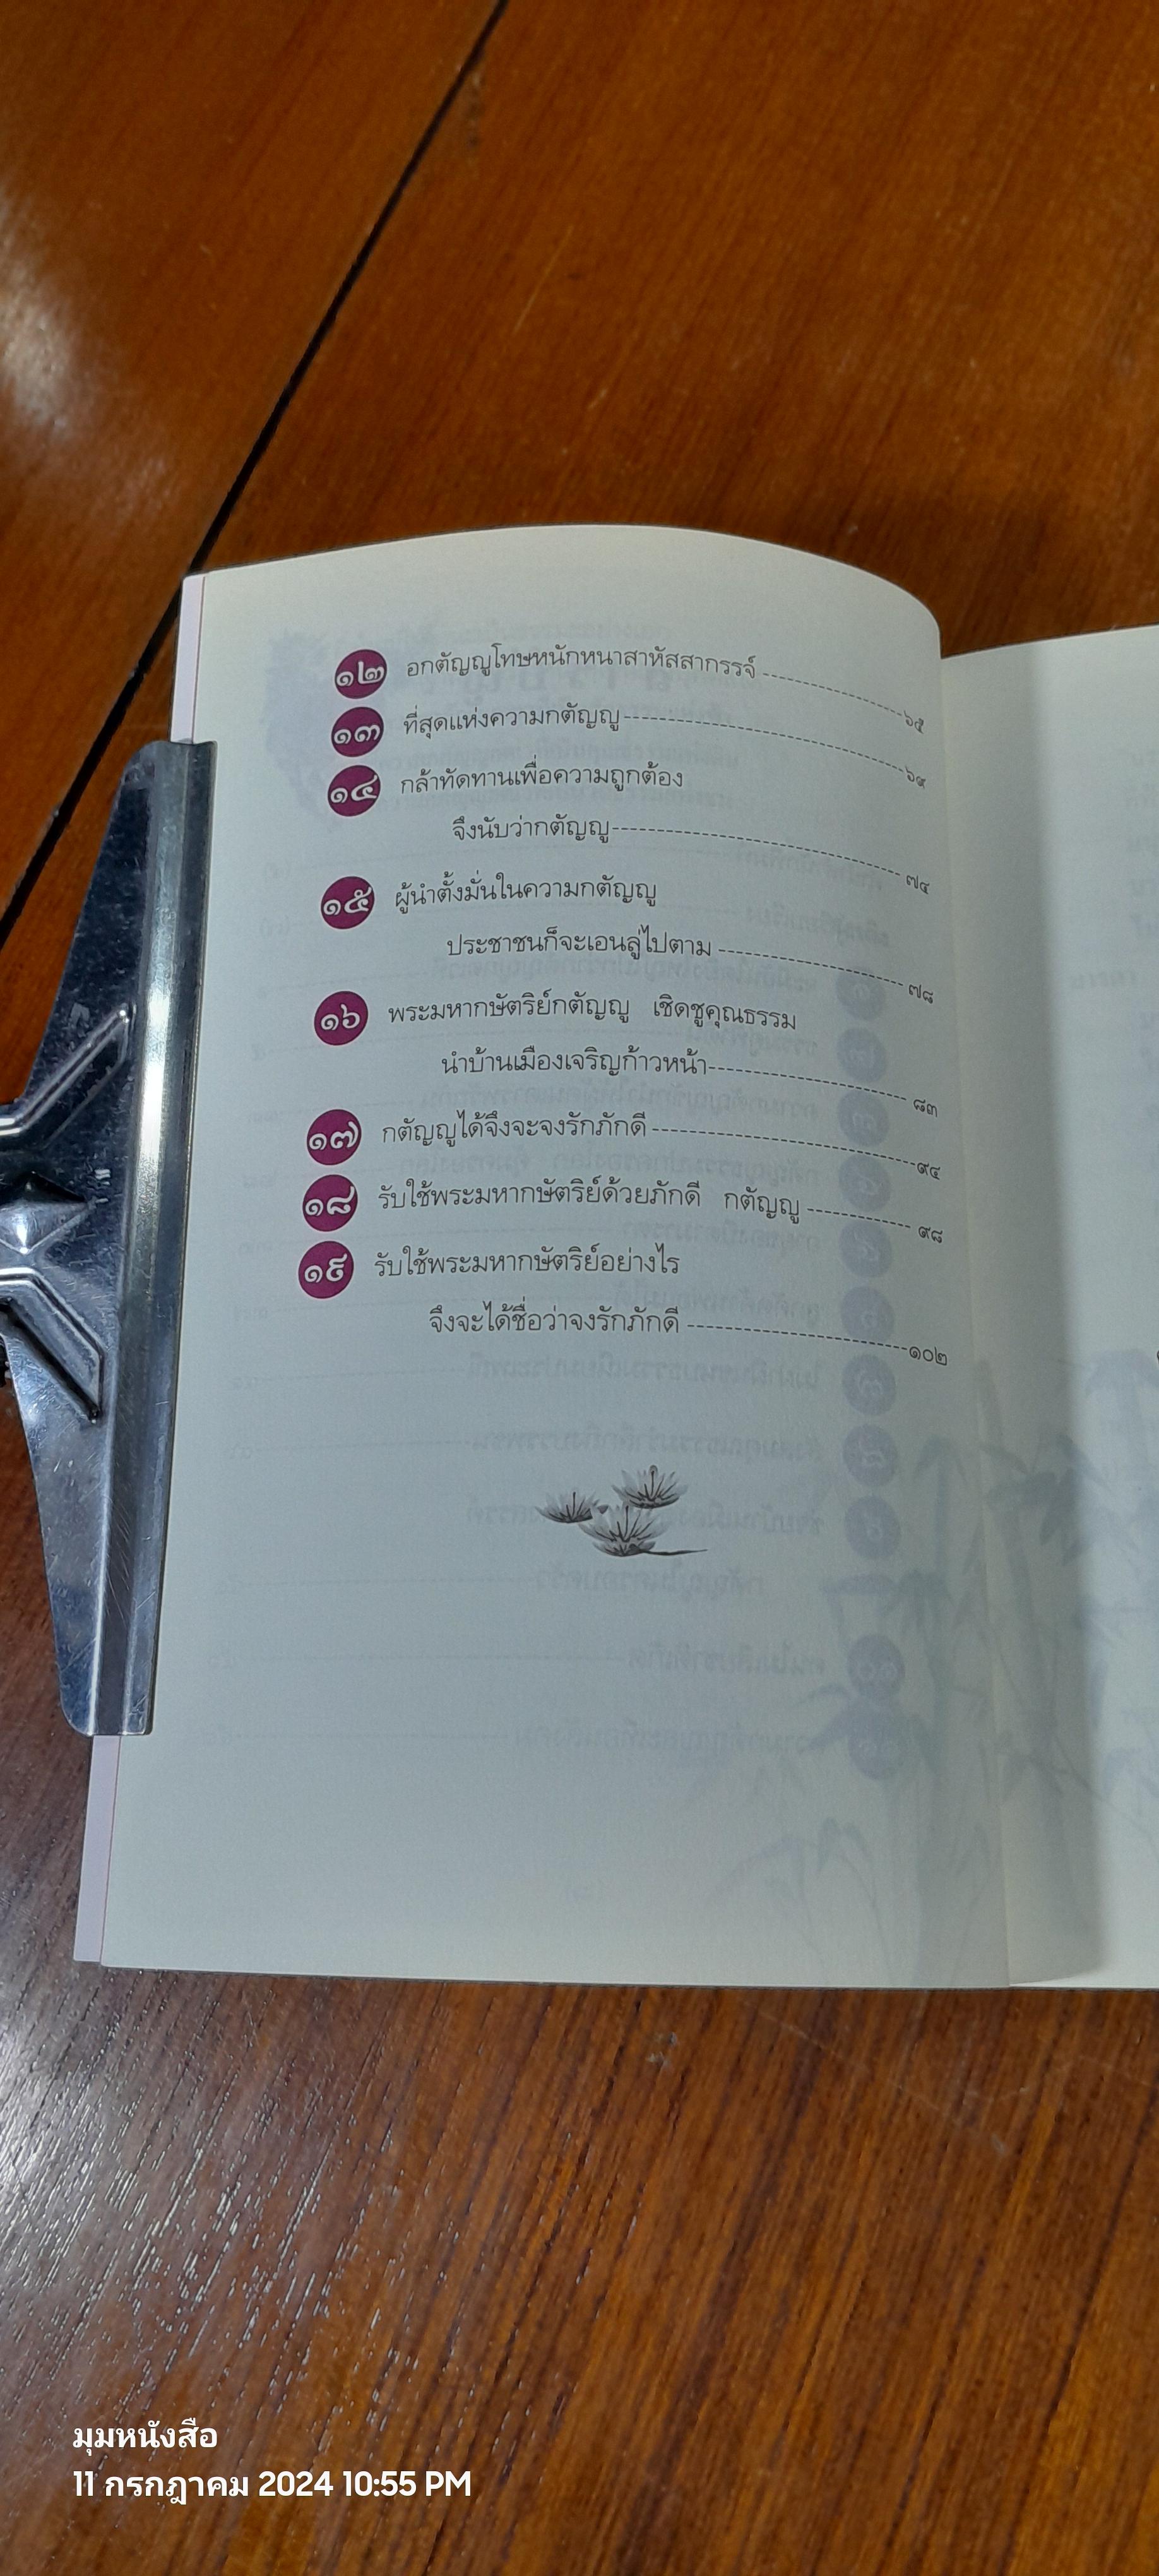 ๑๒ อกตัญญูโทษหนักหนาสาหัสสากรรจ์ ๖๕
๑๓ ที่สุดแห่งความกตัญญู ๖๙
๑๔ กล้าทัดทานเพื่อความถูกต้อง
จึงนับว่ากตัญญู ๗๔
๑๕ ผู้นำตั้งมั่นในความกตัญญู
ประชาชนก็จะเอนลู่ไปตาม ๗๘
๑๖ พระมหากษัตริย์กตัญญู เชิดชูคุณธรรม
นำบ้านเมืองเจริญก้าวหน้า ๘๓
๑๗ กตัญญูได้จึงจะจงรักภักดี ๙๔
๑๘ รับใช้พระมหากษัตริย์ด้วยภักดี กตัญญู ๙๘
๑๙ รับใช้พระมหากษัตริย์อย่างไร
จึงจะได้ชื่อว่าจงรักภักดี ๑๐๒
มุมหนังสือ
11 กรกฎาคม 2024 10:55 PM